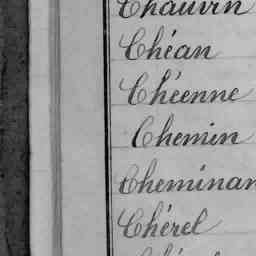 Chauvin
Chéan
Chéenne
Chemin
Cheminan
Chérel